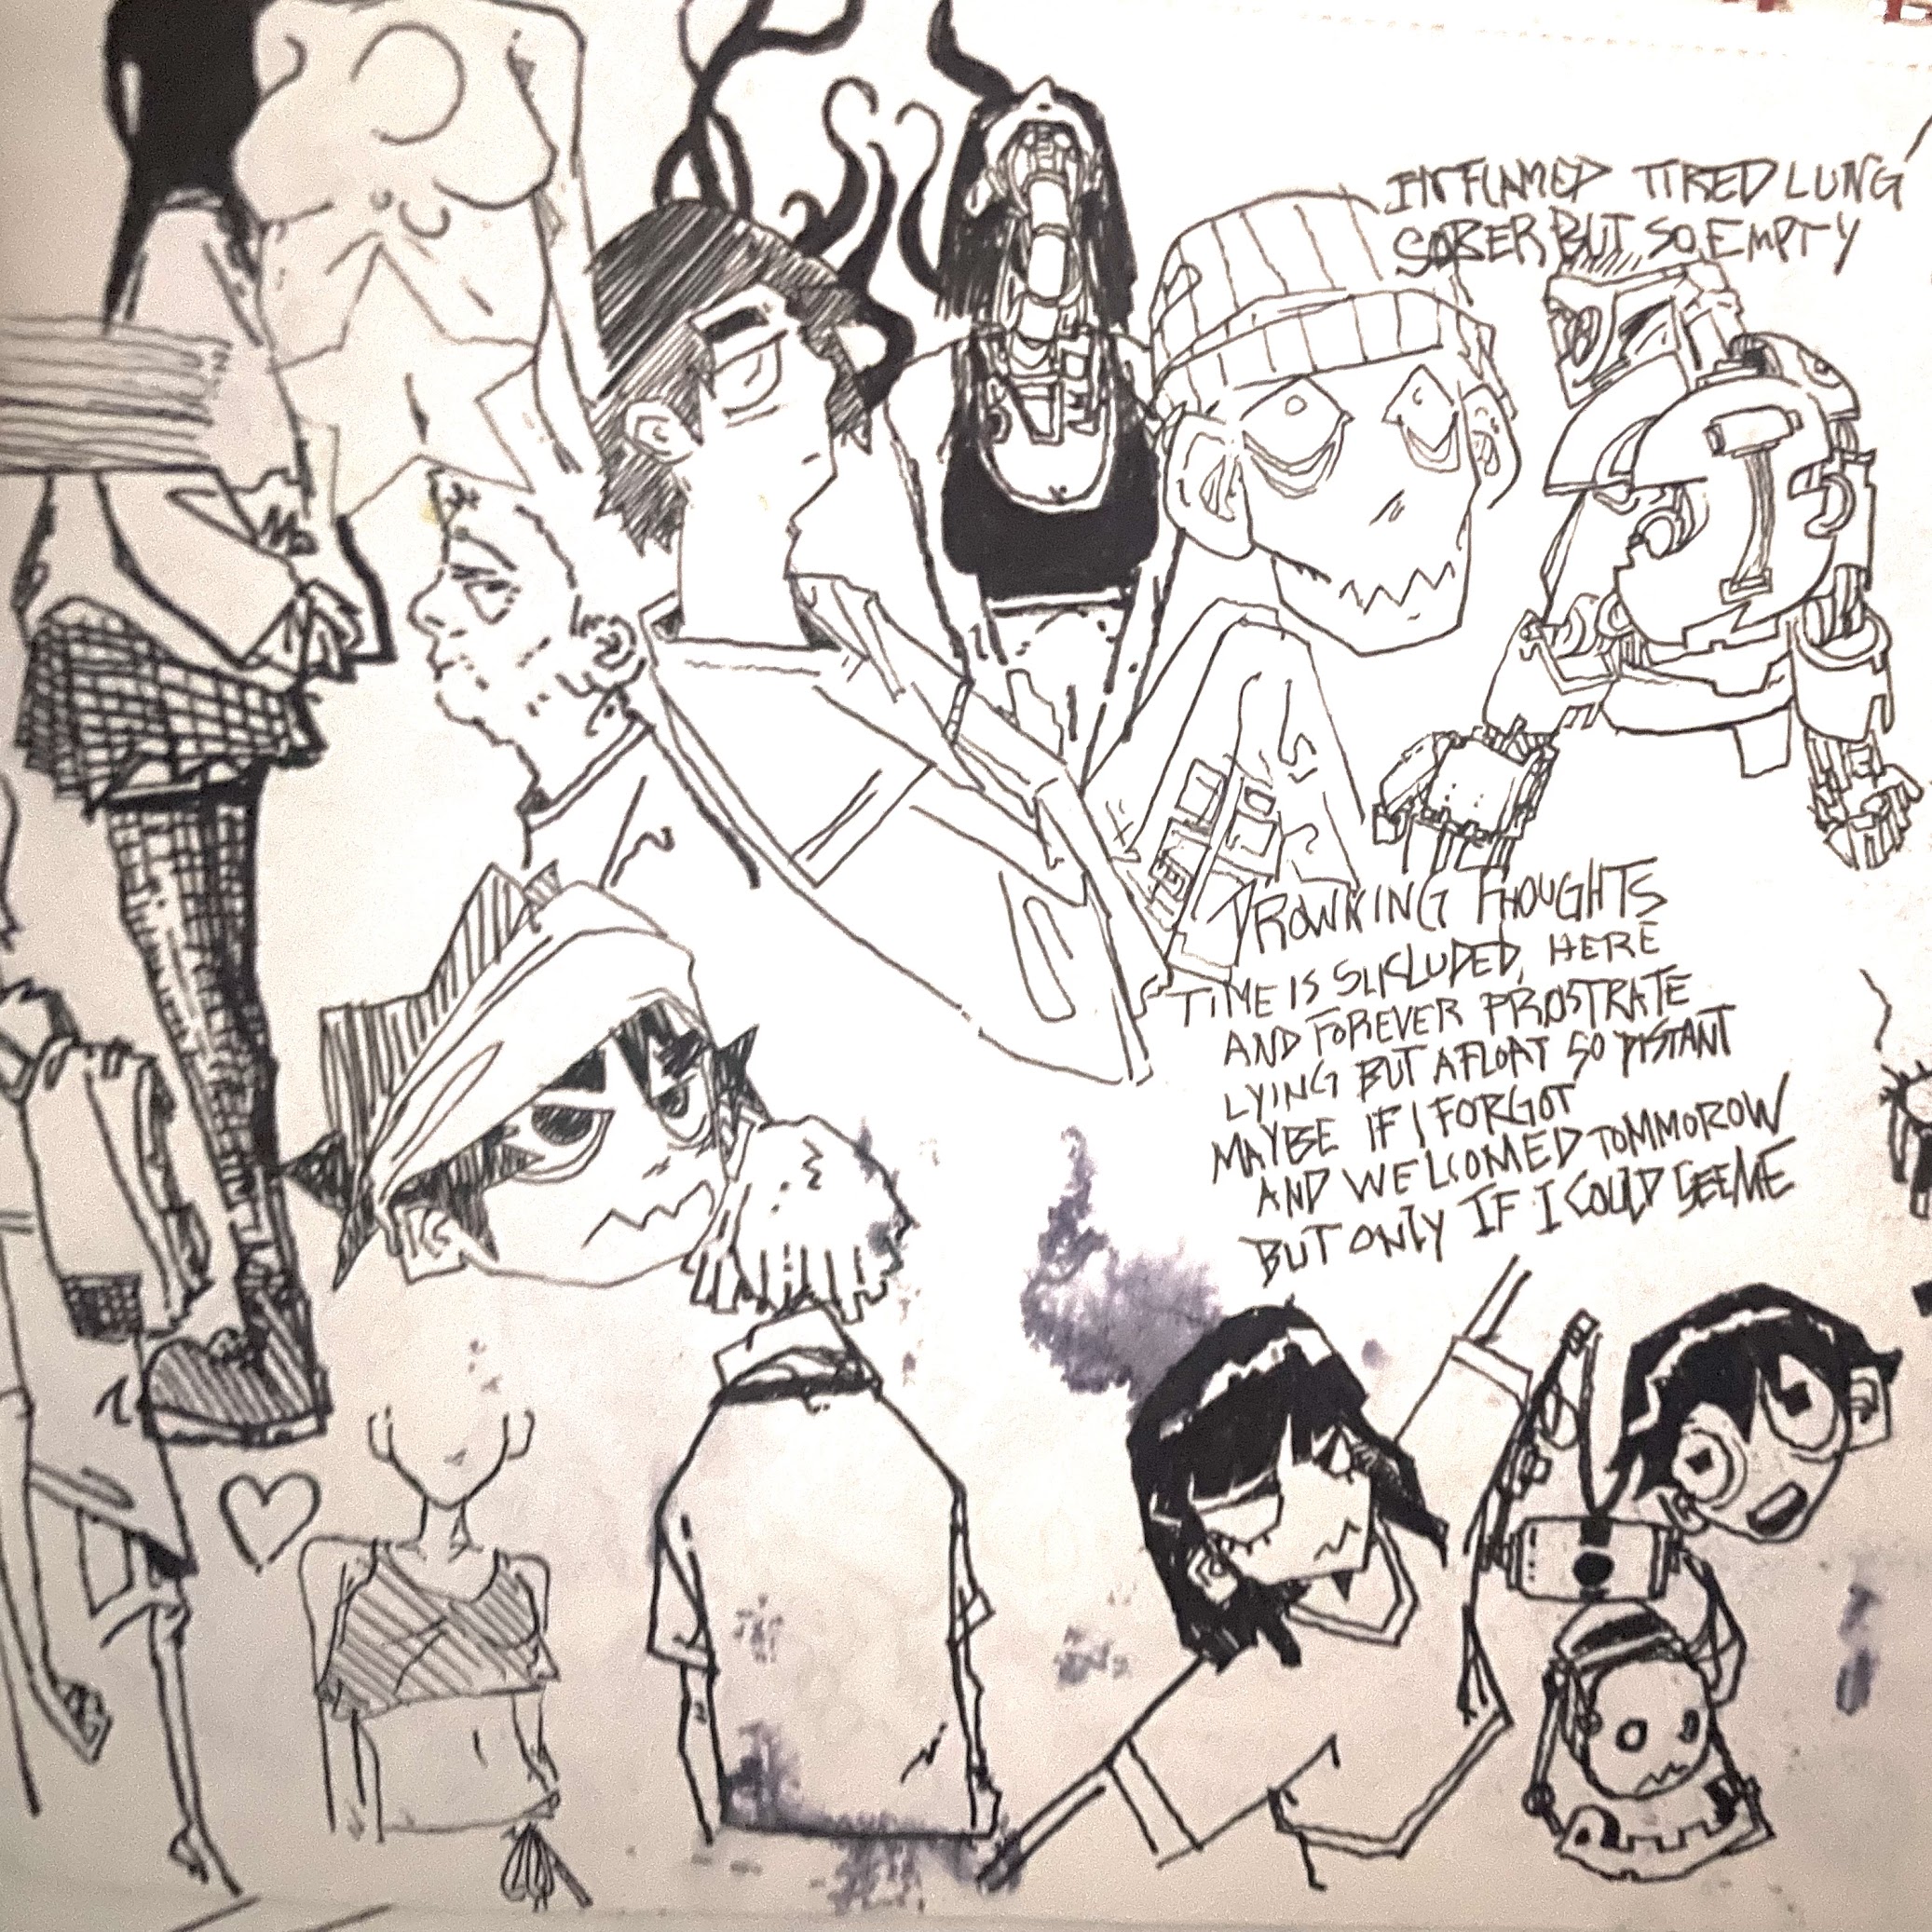 INFLAMED TIRED LUNG
SOBER BUT SO EMPTY
DROWNING THOUGHTS
TIME IS SLICLUDED, HERE
AND FOREVER PROSTRATE
LYING BUT AFLOAT SO DISTANT
MAYBE IF I FORGOT
AND WELCOMED TOMMOROW
BUT ONLY IF I COULD SEE ME